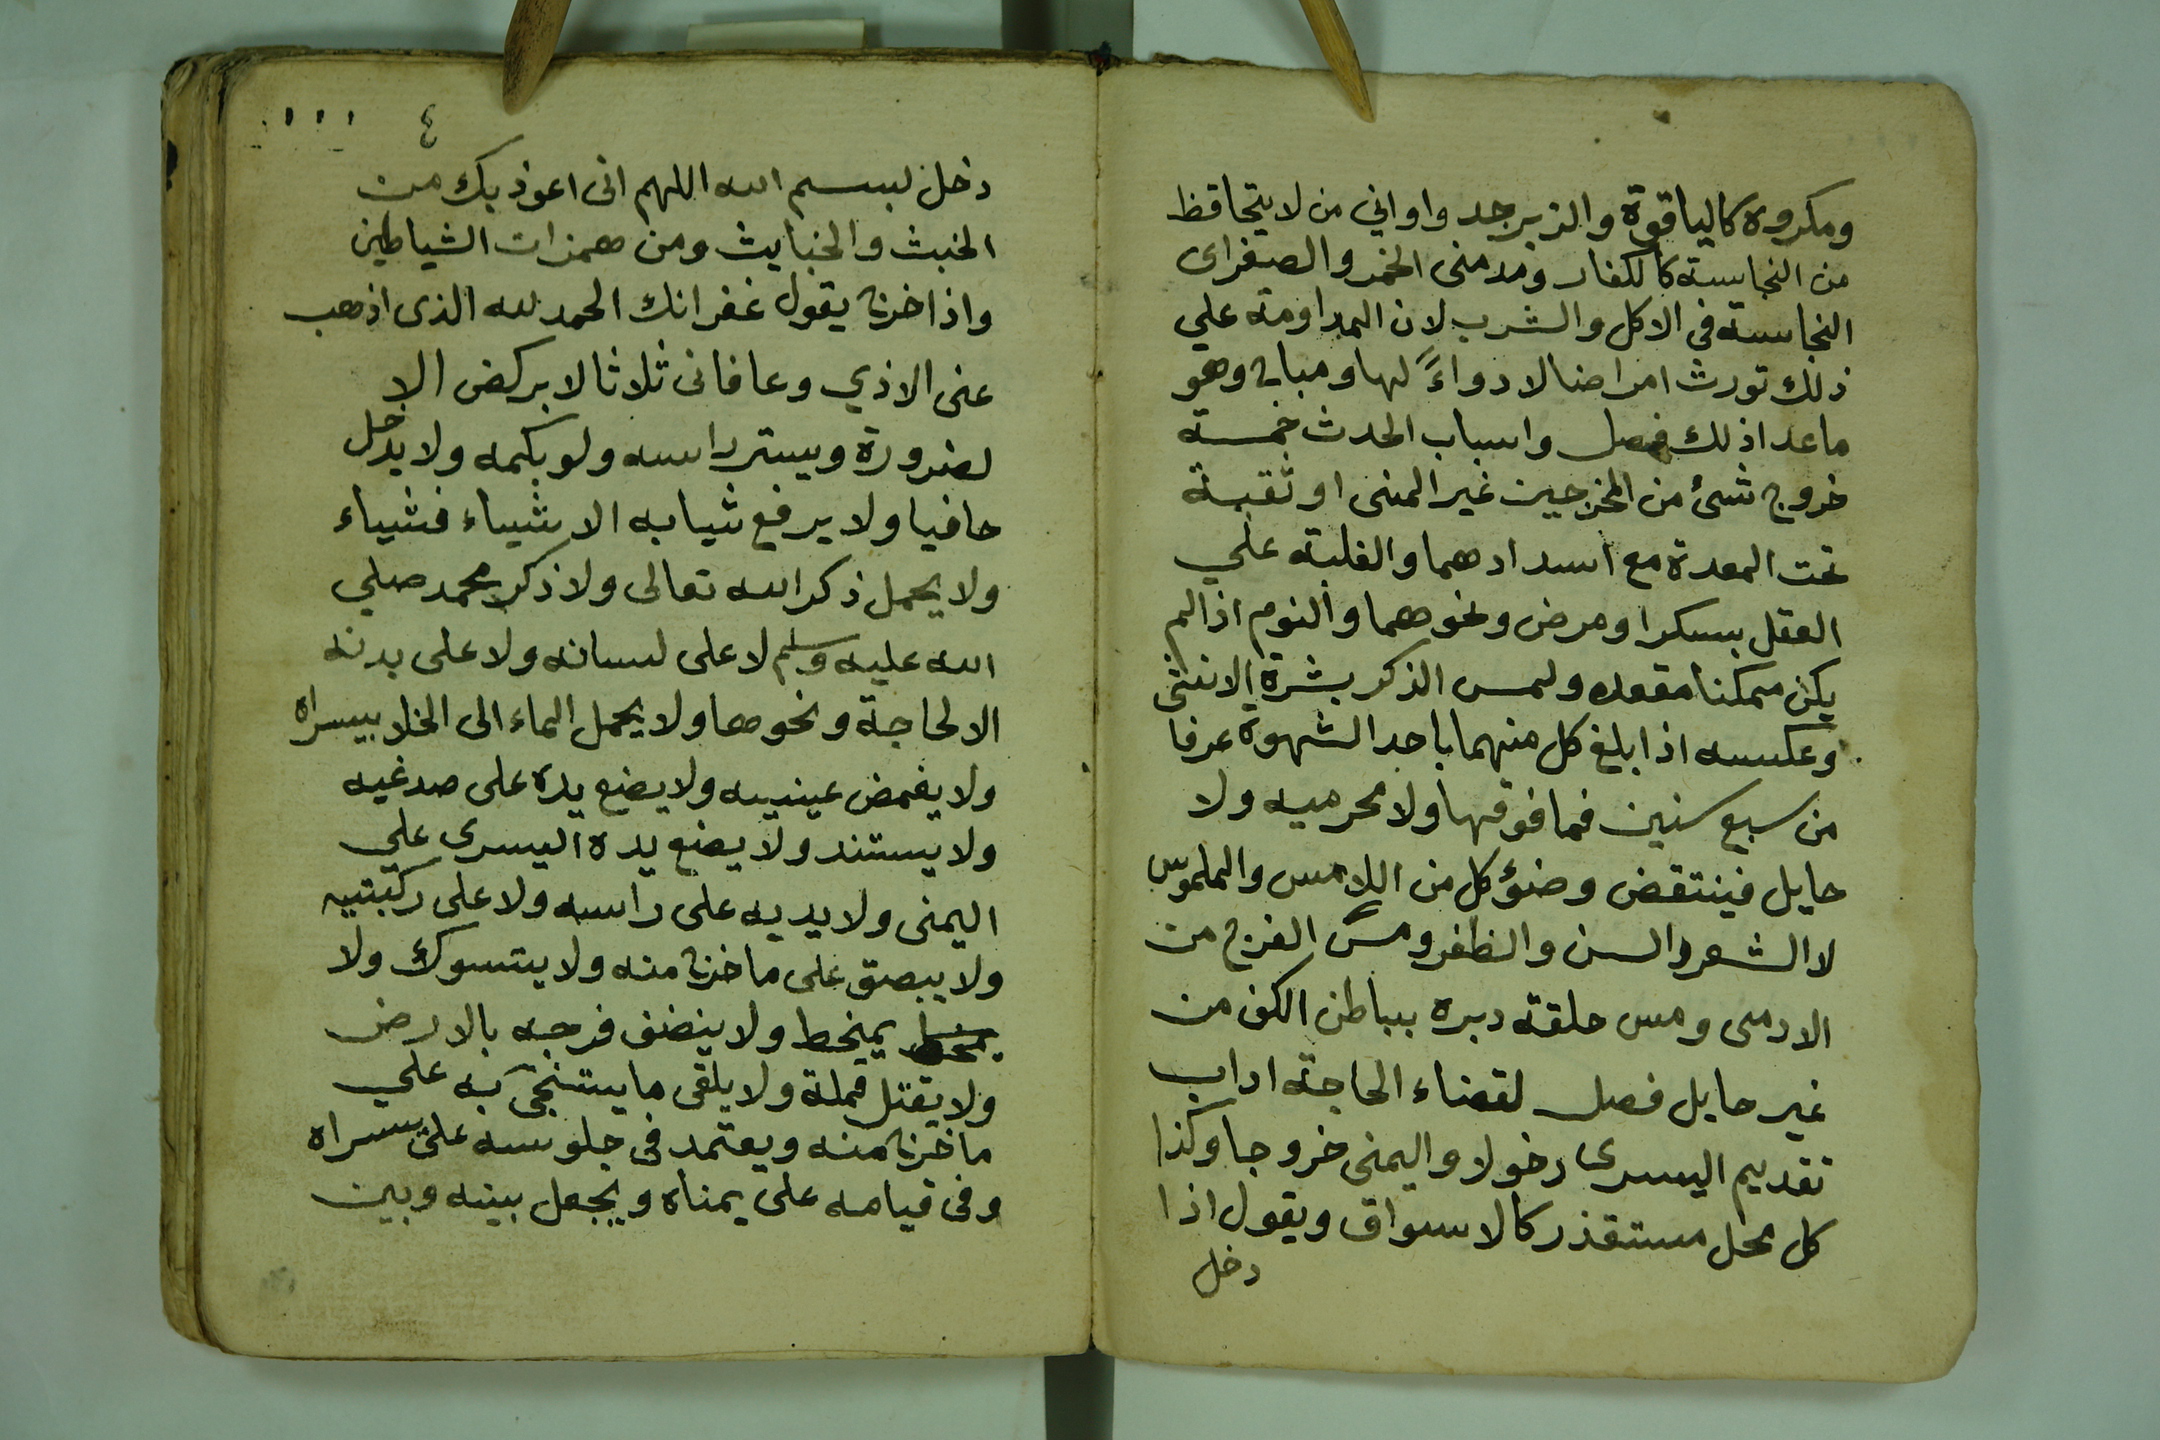 ومكروه كالياقوة والزبرجد واواني من لا يتحافظ
من النجاسته كالكفار ومدمنى الخمر والصفراى
النجاسته فى الاكل والشرب لان المداومة علي
ذلك تورث امراضا لا دواءً لها ومباح وهو
ما عدا ذلك فصل واسباب الحدث خمسة
خروج شئ من المخرجين غير المنى او ثقبة
تحت المعدة مع انسدادهما والغلبته علي
العقل بسكر او مرض ونحوهما والنوم اذا لم
يكن ممكنا مقعده ولمس الذكر بشرة الانثى
وعكسه اذا بلغ كل منهما باحد الشهوة عرفا
من سبع سنين فما فوقها ولا محرميه ولا
حايل فينتقض وضوؤ كل من اللامس والملموس
لا الشعر والسن والظفر ومسّ الفرج من
الادمى ومس حلقة دبره بباطن الكف من
غير حايل فصل لقضاء الحاجة اداب
تقديم اليسرى دخولا واليمنى خروجا وكذا
كل محل مستقذر كالاسواق ويقول اذا
دخل
٤
دخل لبسم الله اللهم انى اعوذ بك من
الخبث والخبايث ومن همزات الشياطين
واذا خرج يقول غفرانك الحمد لله الذى اذهب
عنى الاذي وعافانى ثلاثا لا بركض الا
لضرورة ويستر راسه ولو بكمه ولا يدخل
حافيا ولا يرفع ثيابه الا شيياء فشيياء
ولا يحمل ذكر الله تعالى ولا ذكر محمد صلي
الله عليه وسلم لا على لسانه ولا على بدنه
الا لحاجة ونحوها ولا يحمل الماء الى الخلا بيسراه
ولا يغمض عينييه ولا يضع يده على صدغيه
ولا يستند ولا يضع يده اليسرى علي
اليمنى ولا يديه على راسه ولا على ركبتيه
ولا يبصق على ما خرج منه ولا يتسوك ولا
يمتخط ولا ينضف فرجه بالارض
ولا يقتل قملة ولا يلقى ما يستنجى به علي
ما خرج منه ويعتمد فى جلوسه على يسراه
وفى قيامه على يمناه ويجعل بينه وبين